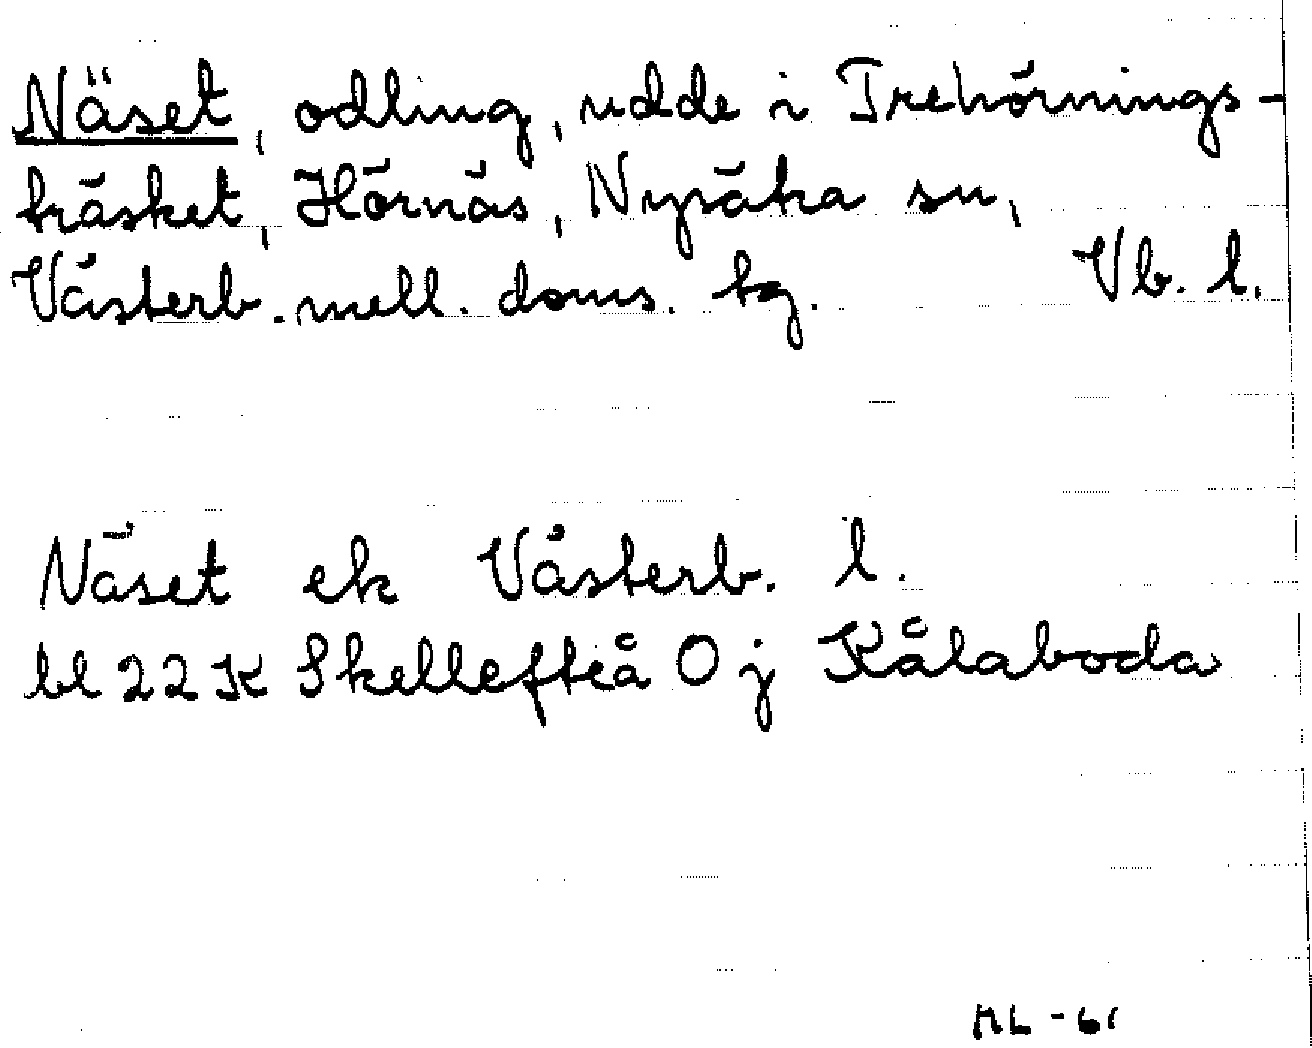 Näset, odling, udde i Trehörnings-
träsket, Hörnäs, Nysätra sn,
Västerb. mell. doms. tg. Vb. l.
Näset ek Västerb. l.
bl 22K Skellefteå 0 j Kålaboda
ML-61